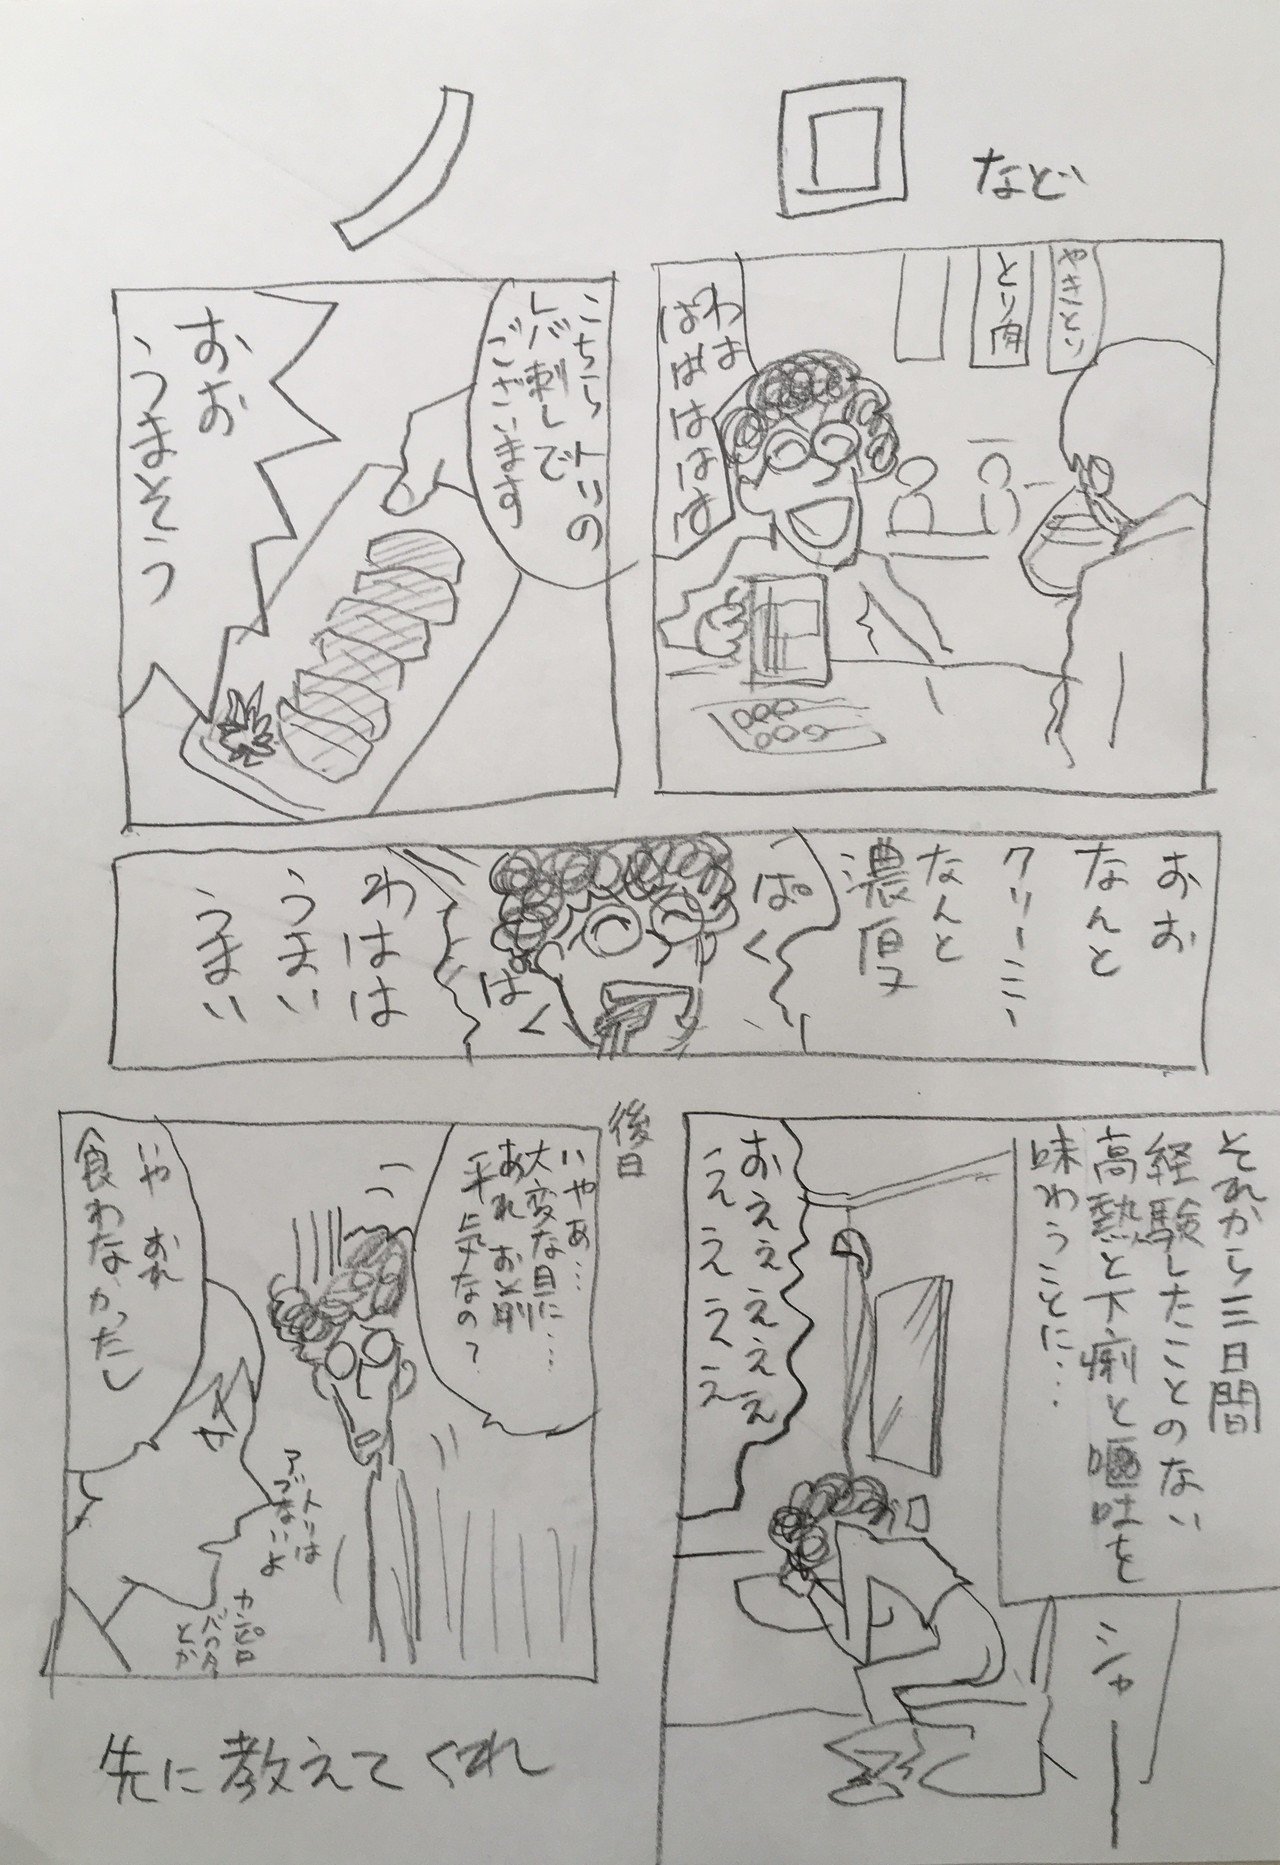 など
やきとり
とり肉
わは
はははははは
こちらトリの
レバ刺しで
ございます
おお
うまそう
おお
なんと
クリーミー
なんと
濃厚
ぱく
ぱく
わはは
うまい
うまい
それから三日間
経験したことのない
高熱と下痢と嘔吐を
味わうことに…
おええええええ
ええええええ
シャー
後日
いやあ…
大変な目に…
あれお前
平気なの?
いやおれ
食わなかったし
トリは
アブないよ
カンピロ
バクタ
とか
先に教えてくれ